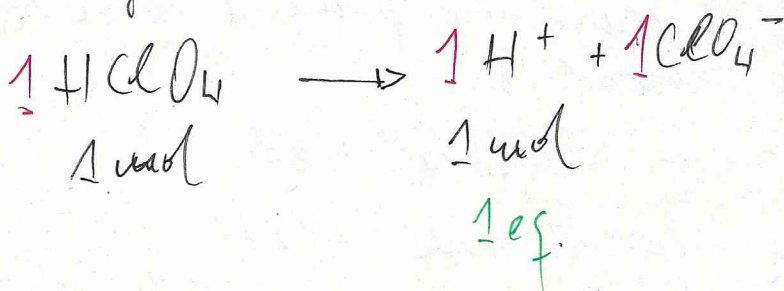 1 HClO₄ → 1 H⁺ + 1 ClO₄⁻
1 mol 1 mol
1 eq.